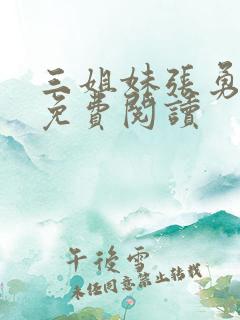 三姐妹张勇
免費閱讀
午後雪
未经同意禁止转载